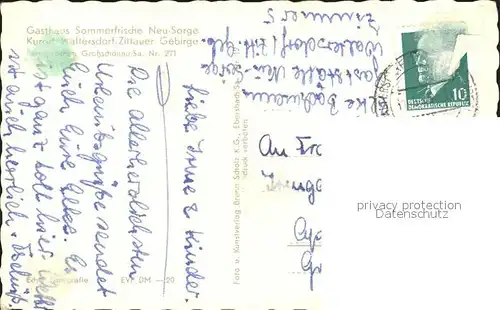 Gasthaus Sommerfrische Neu-Sorge
Kurort Waltersdorf, Zittauer Gebirge
Großschönau/Sa. Nr. 271
Liebe Irma u. Kinder.
Die allerherzlichsten
Urlaubsgrüße sendet
Euch Eure Elke. Es
ist ganz toll hier. Wetter
ist auch herrlich.
Echte Fotografie EVP DM —20
Foto u. Kunstverlag Bruno Scholz K.G., Ebersbach-Sa.
Nachdruck verboten
Elke
Gaststätte Neu-Sorge
Waltersdorf / Zitt. Geb.
Zimmer 5
DEUTSCHE
DEMOKRATISCHE REPUBLIK
10
An
privacy protection
Datenschutz